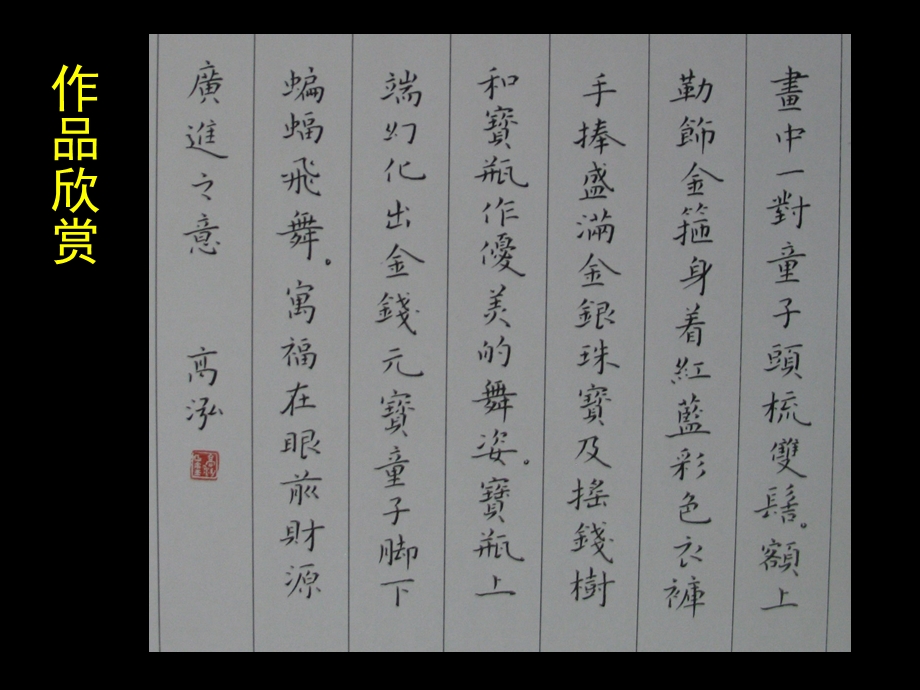 作品欣赏
畫中一對童子頭梳雙髻。額上
勒飾金箍身着紅藍彩色衣褲
手捧盛滿金銀珠寶及搖錢樹
和寶瓶作優美的舞姿。寶瓶上
端幻化出金錢元寶童子脚下
蝙蝠飛舞。寓福在眼前財源
廣進之意 高泓